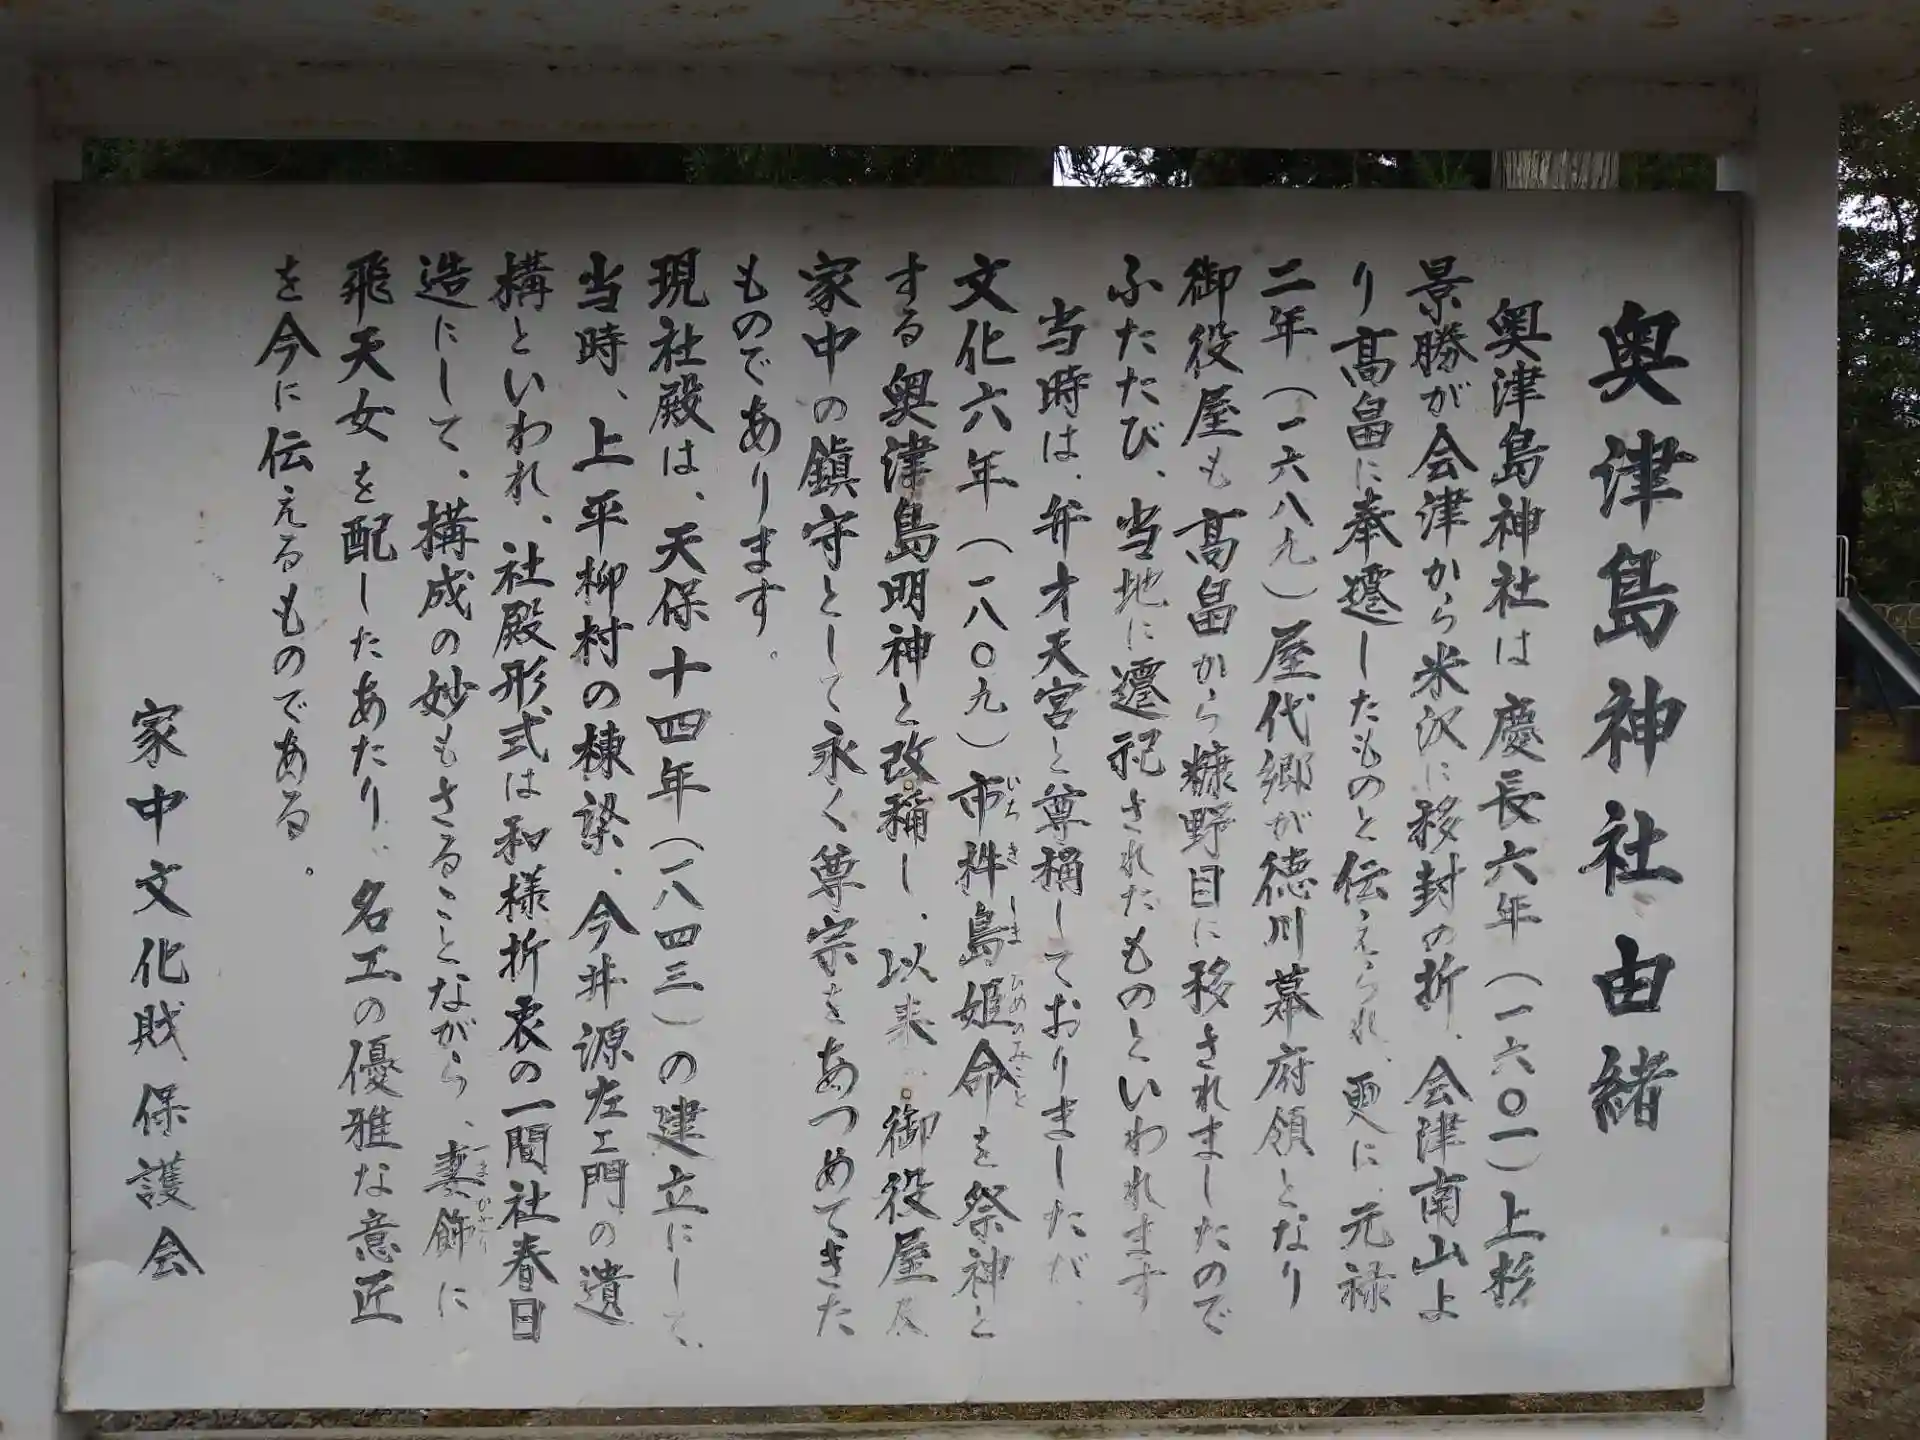 奥津島神社由緒
奥津島神社は慶長六年(一六〇一)上杉
景勝が会津から米沢に移封の折、会津南山よ
り髙畠に奉遷したものと伝えられ、更に、元禄
二年(一六八九)屋代郷が徳川幕府領となり
御役屋も髙畠から糠野目に移されましたので
ふたたび、当地に遷祀されたものといわれます
当時は、弁才天宮と尊稱しておりましたが、
文化六年(一八〇九)市杵島姫命を祭神と
いちきしまひめのみこと
する奥津島明神と改稱し、以来、御役屋及
家中の鎮守として永く尊宗をあつめてきた
ものであります。
現社殿は、天保十四年(一八四三)の建立にして、
当時、上平柳村の棟梁、今井源左エ門の遺
構といわれ、社殿形式は和様折衷の一間社春日
造にして、構成の妙もさることながら、妻飾に
つまかざり
飛天女を配したあたり、名工の優雅な意匠
を今に伝えるものである。
家中文化財保護会